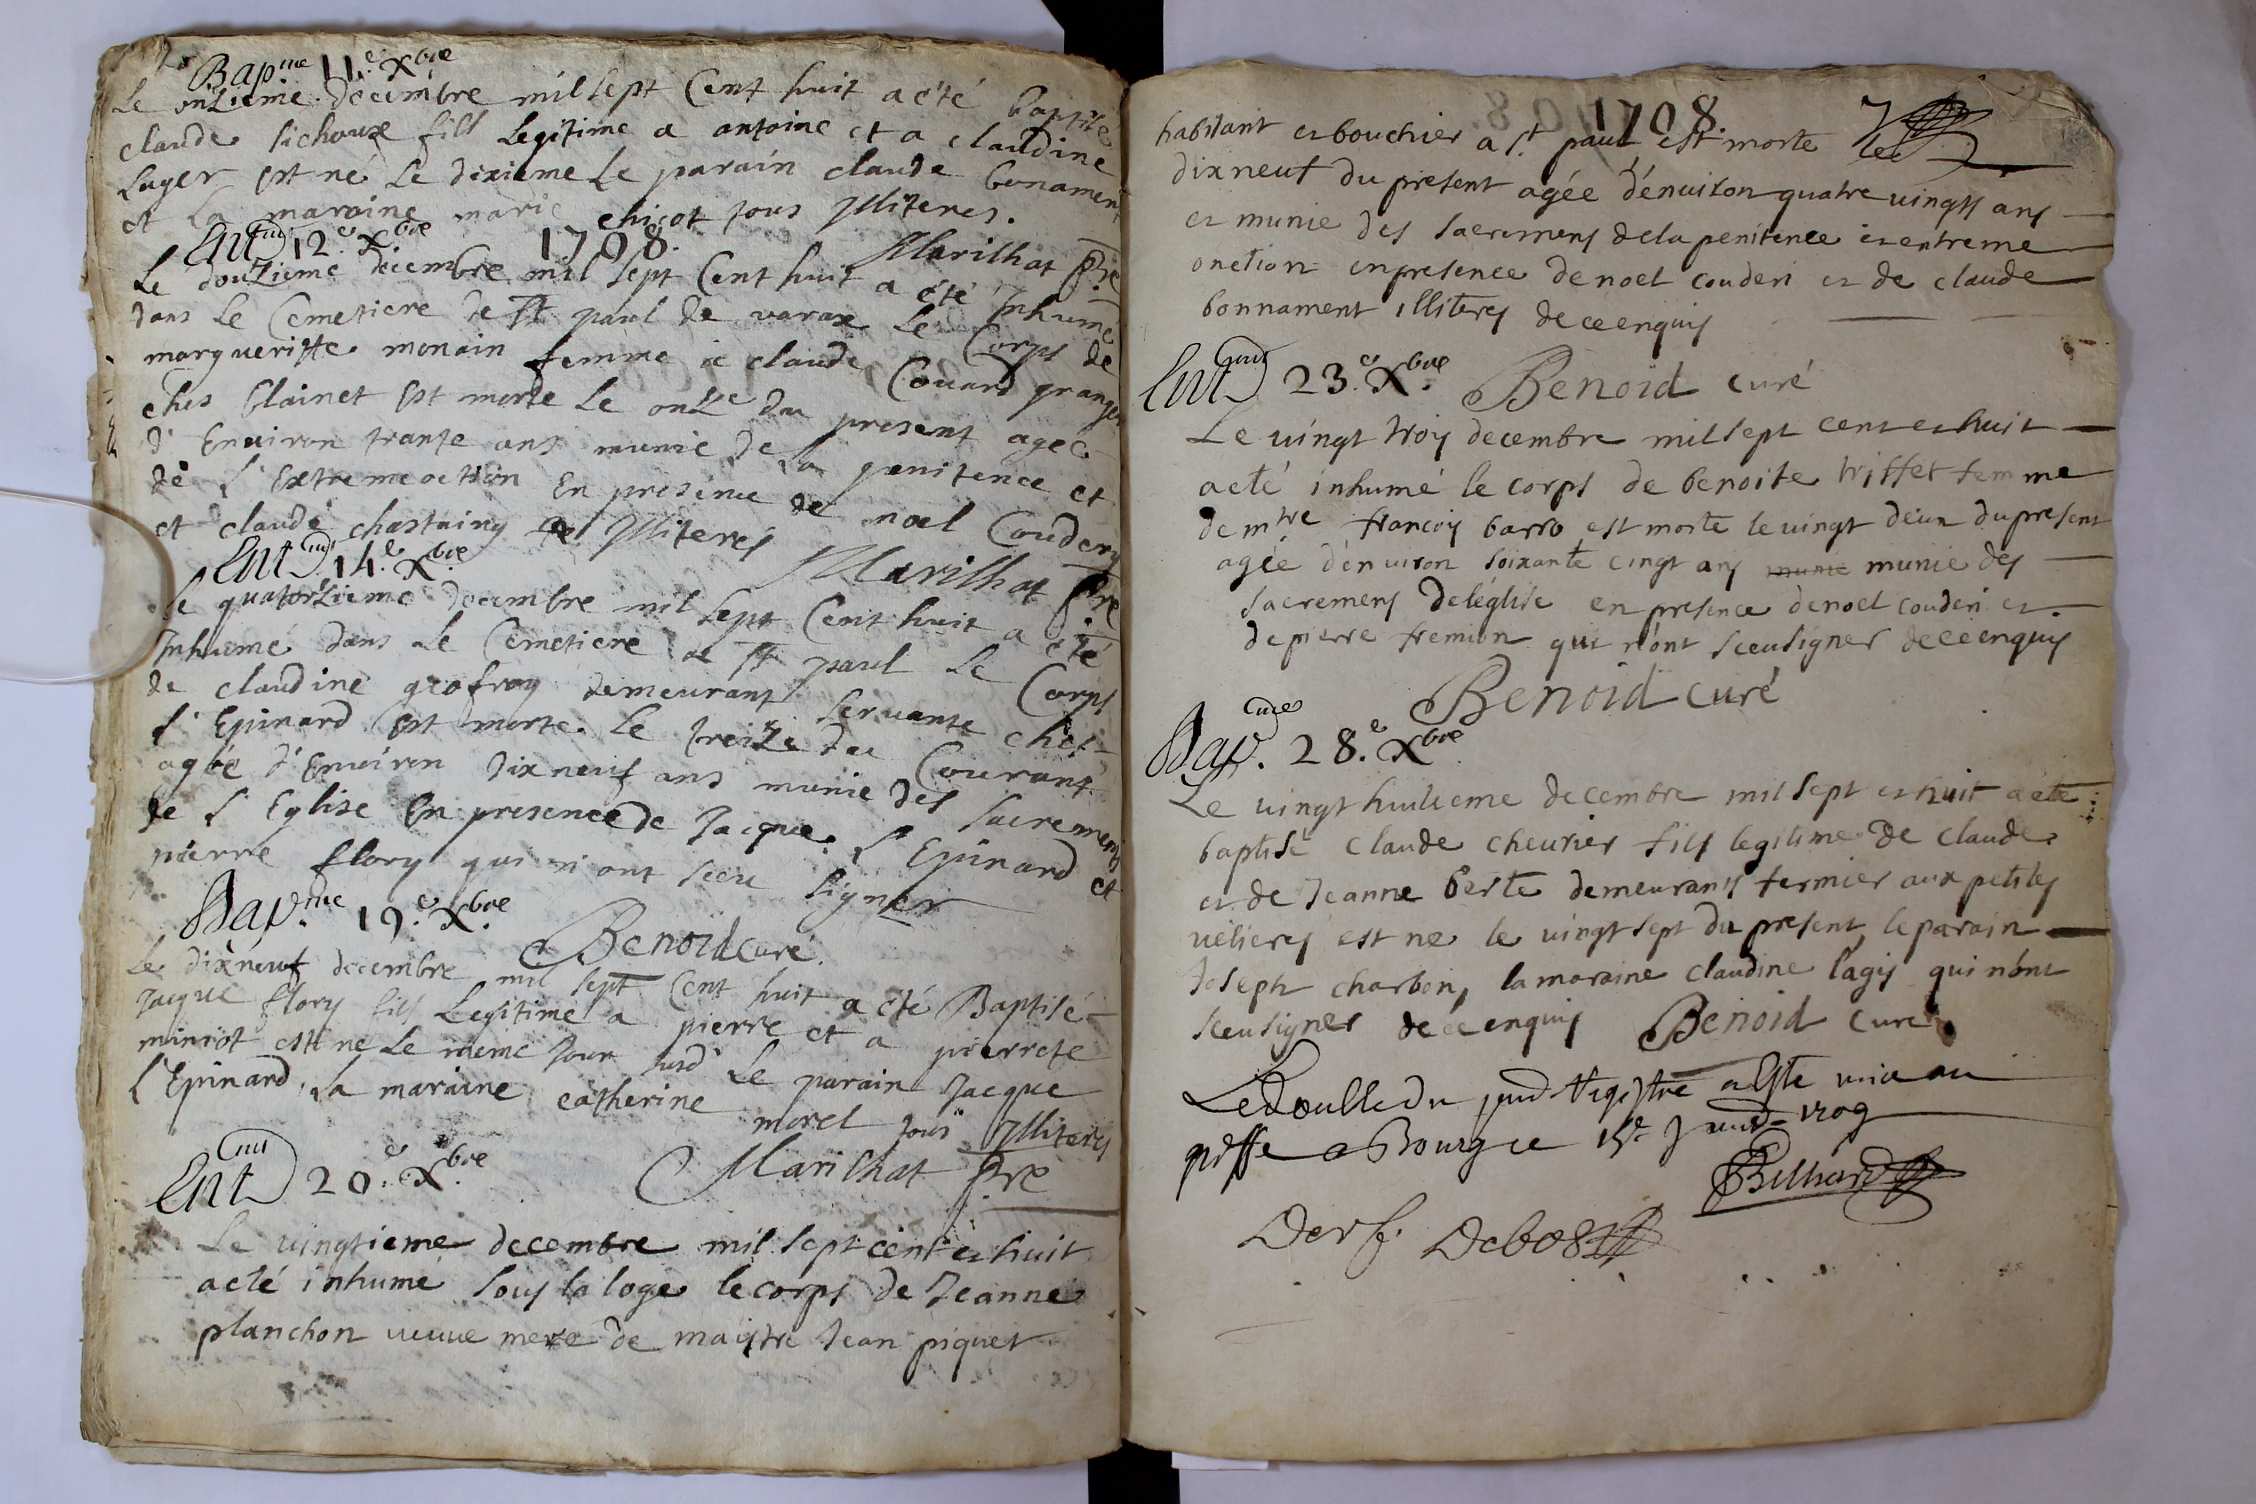 Bap.me 11.e Xbre
Le onzieme decembre mil sept Cent huit a été baptisé
claude sichoux fils Legitime a antoine et a claudine
Luger est né Le dixieme Le parain claude bonament
et La maraine marie chicot tous Illiteres.
Marilhat pre
Ent 12.e Xbre 1708.
Le douzieme decembre mil sept Cent huit a été Inhumé
dans Le Cemetiere de St paul de varax Le Corps de
margueritte monain femme a claude Couard granger
ches blainet est morte Le onze du present agee
d'Environ trante ans munie de La penitence et
de L'Extreme oction En presence de noel Coudery
et claude chastaing Illiteres
Marilhat pre
Ent 14.e Xbre
Le quatorzieme decembre mil sept Cent huit a été
Inhumé dans Le Cemetiere de St paul Le Corps
de claudine geofray demeurant servante ches
L'Epinard est morte Le treize du Courant
agée d'Environ dix neuf ans munie des sacrements
de L'Eglise En presence de Jacque L'Epinard et
pierre flory qui n ont sceu signer
Benoid curé.
Bap.me 19.e Xbre
Le dixneuf decembre mil sept Cent huit a été Baptisé
Jacque flory fils Legitime a pierre et a pierrete
miniot est né Le meme Jour Le parain Jacque
L'Epinard, La maraine catherine morel tous Illiteres
Marilhat pre
Ent 20.e Xbre
Le vingtieme decembre mil sept cent et huit
a eté inhumé sous la loge le corps de Jeanne
planchon veuve mere de maistre Jean piquet
1708.
habitant et bouchier a St paul est morte le
dixneuf du present agée d'énviron quatre vingts ans
et munie des sacremens de la penitence et extreme
onction en presence de noel couderi et de claude
bonnament illiteres de ce enquis
Ent 23.e Xbre Benoid curé
Le vingt trois decembre mil sept cent et huit
a eté inhumé le corps de benoite triffet femme
de mtre francois barro est morte le vingt deux du present
agée d'énviron soixante cingt ans munie munie des
sacremens de l'église en presence de noel couderi et
de pierre fremion qui n'ónt sceu signer de ce enquis
Benoid curé
Bap. 28.e Xbre
Le vingt huitieme decembre mil sept et huit a eté
baptisé claude cheurier fils legitime de claude
et de Jeanne berte demeurants fermier aux petites
vélieres est né le vingt sept du present, le parain
Joseph charbon, la maraine claudine lagis qui n'ónt
sceu signer de ce enquis Benoid curé
Le Double du pnt Registre a Este mis au
greffe a Bourg ce 15e 1709
Billiard